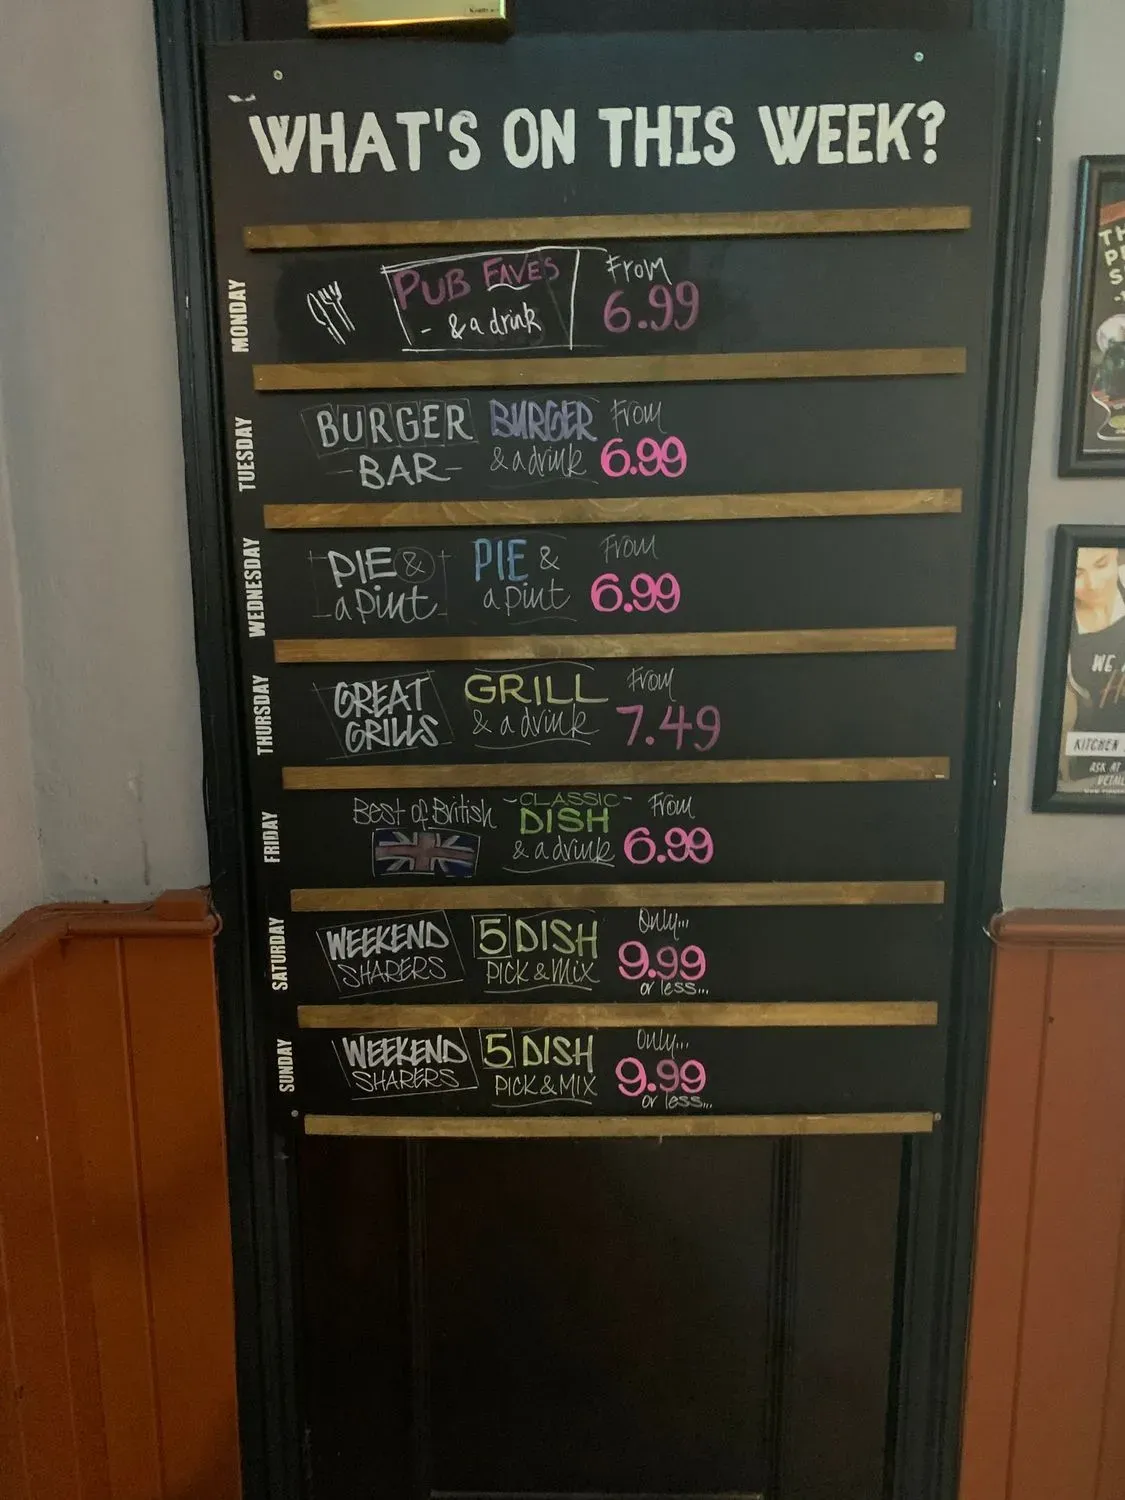 WHAT'S ON THIS WEEK?
MONDAY
PUB FAVES
- & a drink
From
6.99
TUESDAY
BURGER
- BAR -
BURGER
& a drink
From
6.99
WEDNESDAY
PIE &
a pint
PIE &
a pint
From
6.99
THURSDAY
GREAT
GRILLS
GRILL
& a drink
From
7.49
FRIDAY
Best of British
- CLASSIC -
DISH
& a drink
From
6.99
SATURDAY
WEEKEND
SHARERS
5 DISH
PICK & MIX
Only...
9.99
or less...
SUNDAY
WEEKEND
SHARERS
5 DISH
PICK & MIX
Only...
9.99
or less...
WE
KITCHEN
ASK AT